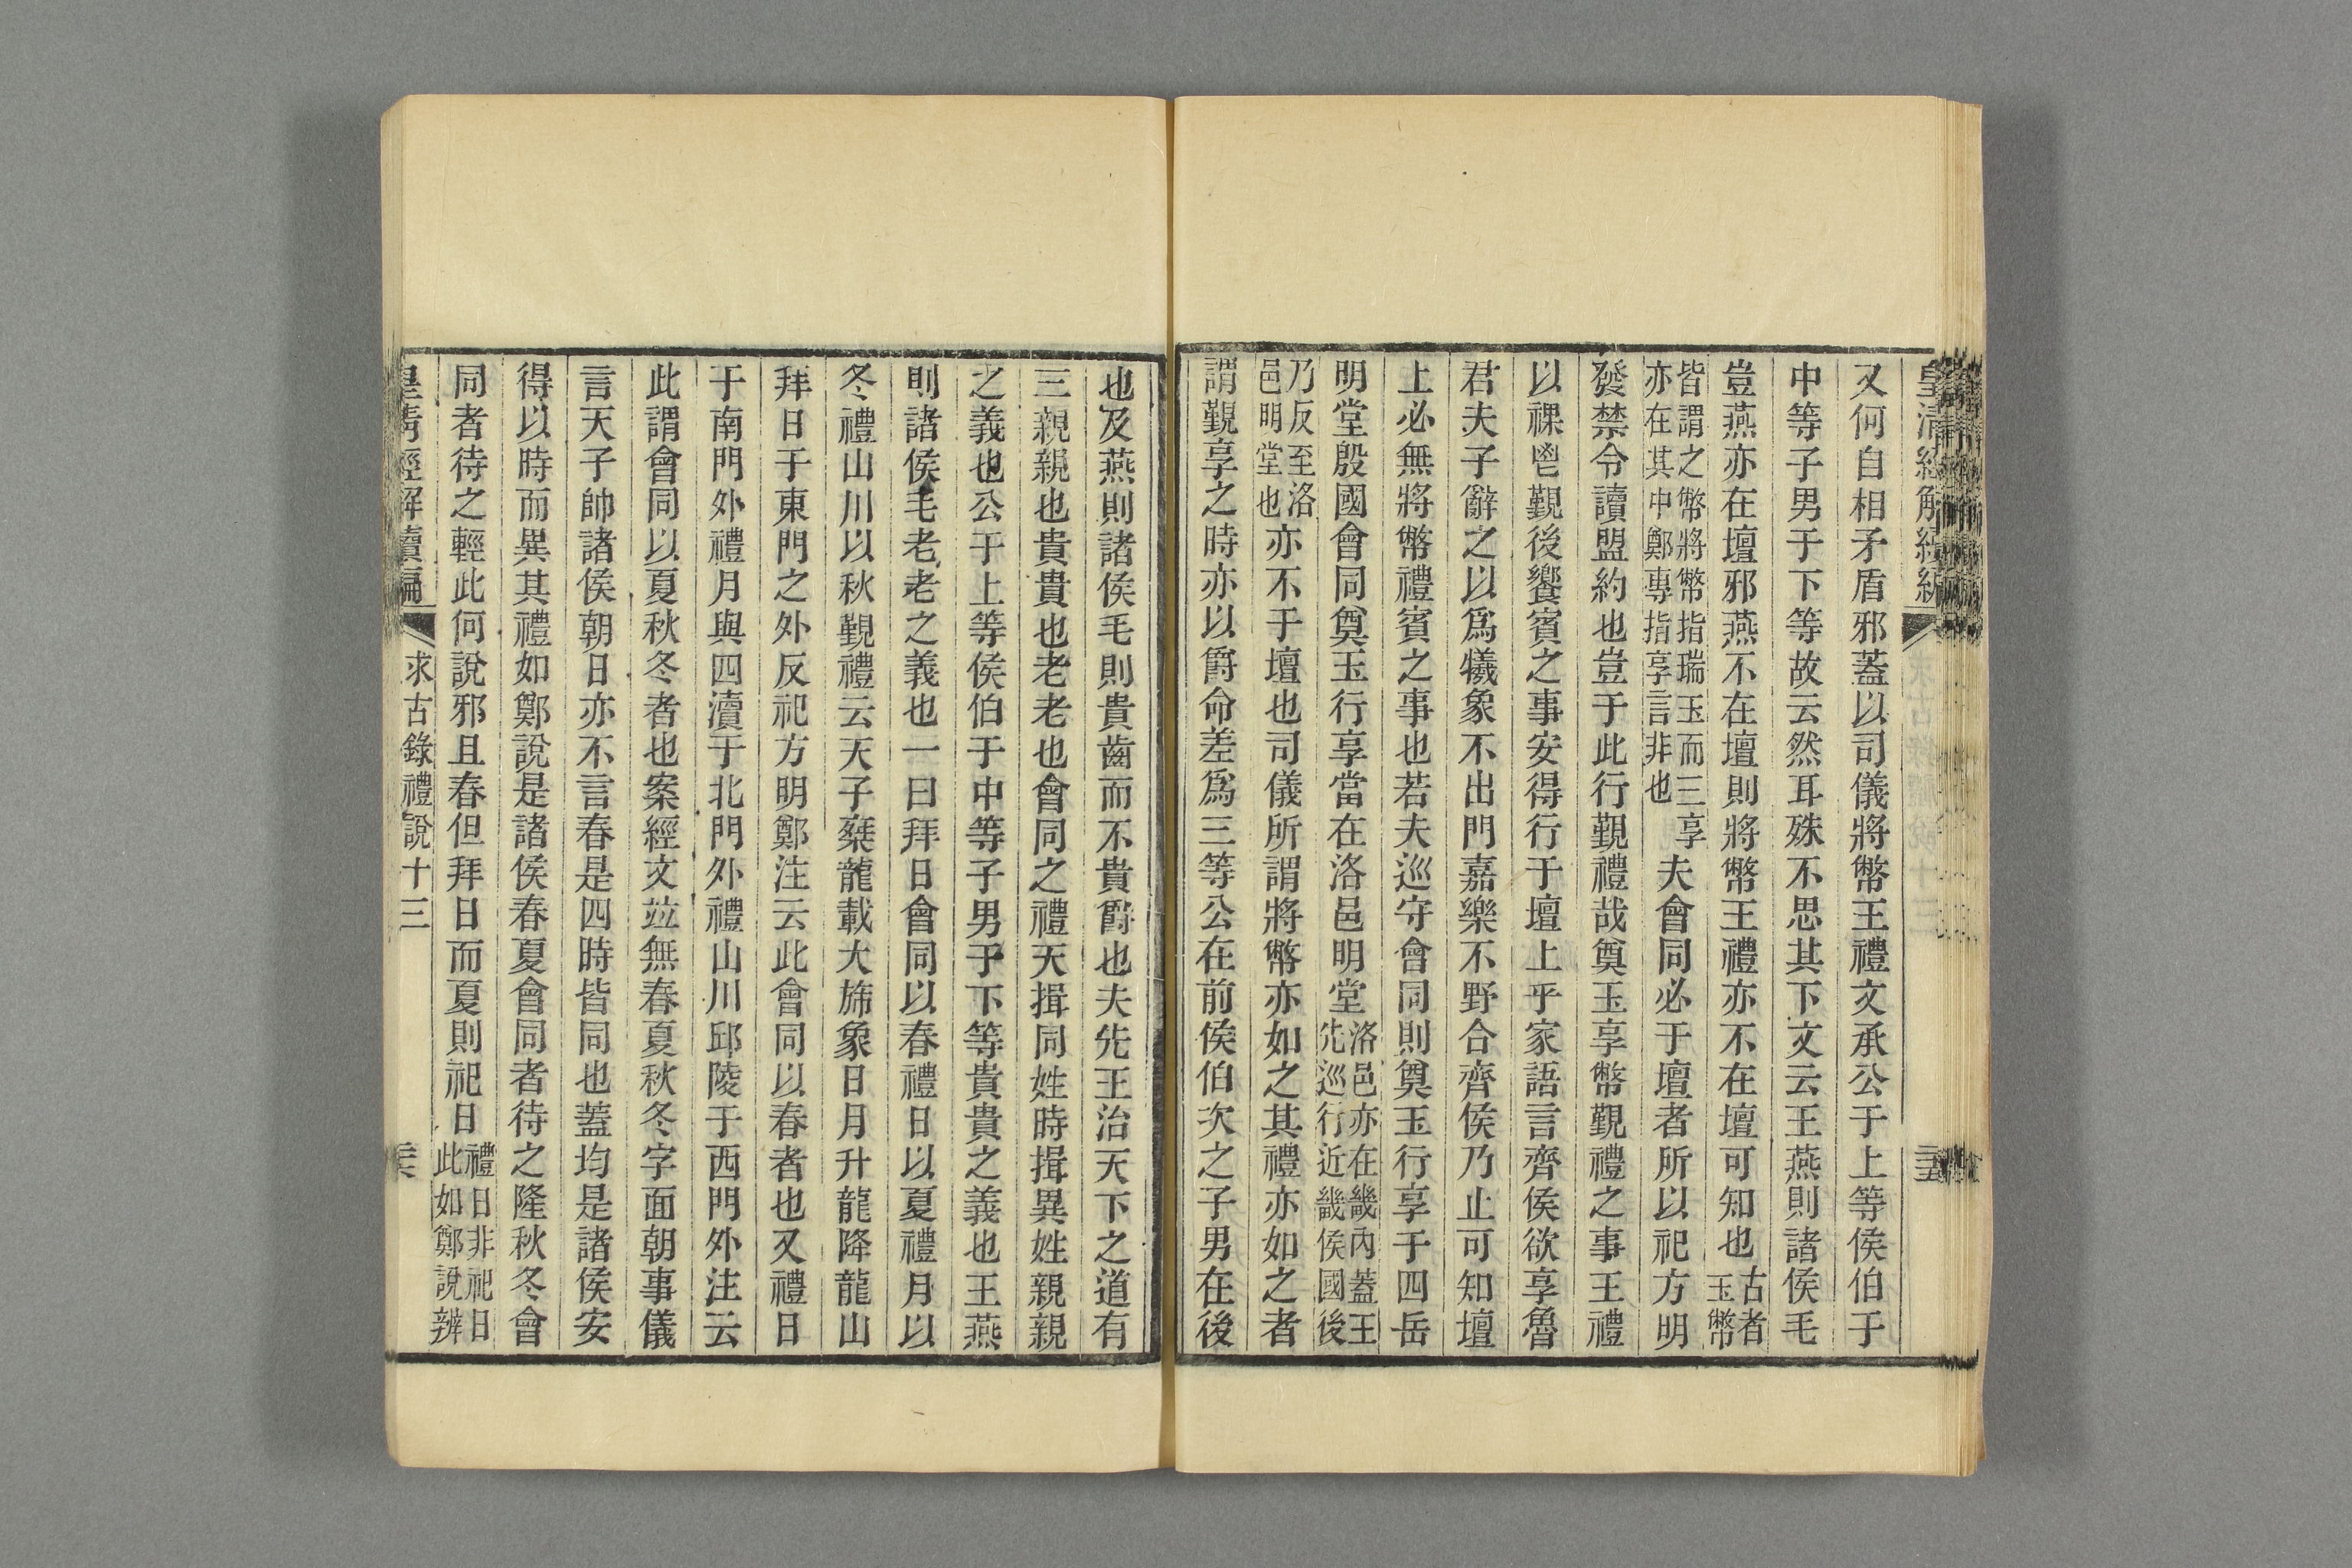 皇清經解續編
又何自相矛盾邪蓋以司儀將幣王禮文承公于上等侯伯于
中等子男于下等故云然耳殊不思其下文云王燕則諸侯毛
豈燕亦在壇邪燕不在壇則將幣王禮亦不在壇可知也古者玉幣
皆謂之幣將幣指瑞玉而三享亦在其中鄭專指享言非也夫會同必于壇者所以祀方明
發禁令讀盟約也豈于此行覲禮哉奠玉享幣覲禮之事王禮
以祼鬯覲後饗賓之事安得行于壇上乎家語言齊侯欲享魯
君夫子辭之以爲犧象不出門嘉樂不野合齊侯乃止可知壇
上必無將幣禮賓之事也若夫巡守會同則奠玉行享于四岳
明堂殷國會同奠玉行享當在洛邑明堂洛邑亦在畿內蓋王先巡行近畿侯國後
乃反至洛邑明堂也亦不于壇也司儀所謂將幣亦如之其禮亦如之者
謂覲享之時亦以爵命差爲三等公在前侯伯次之子男在後
也及燕則諸侯毛則貴齒而不貴爵也夫先王治天下之道有
三親親也貴貴也老老也會同之禮天揖同姓時揖異姓親親
之義也公于上等侯伯于中等子男于下等貴貴之義也王燕
則諸侯毛老老之義也一曰拜日會同以春禮日以夏禮月以
冬禮山川以秋覲禮云天子乘龍載大旆象日月升龍降龍山
拜日于東門之外反祀方明鄭注云此會同以春者也又禮日
于南門外禮月與四瀆于北門外禮山川邱陵于西門外注云
此謂會同以夏秋冬者也案經文竝無春夏秋冬字面朝事儀
言天子帥諸侯朝日亦不言春是四時皆同也蓋均是諸侯安
得以時而異其禮如鄭說是諸侯春夏會同者待之隆秋冬會
同者待之輕此何說邪且春但拜日而夏則祀日禮日非祀日此如鄭說辨
皇清經解續編 求古錄禮說十三